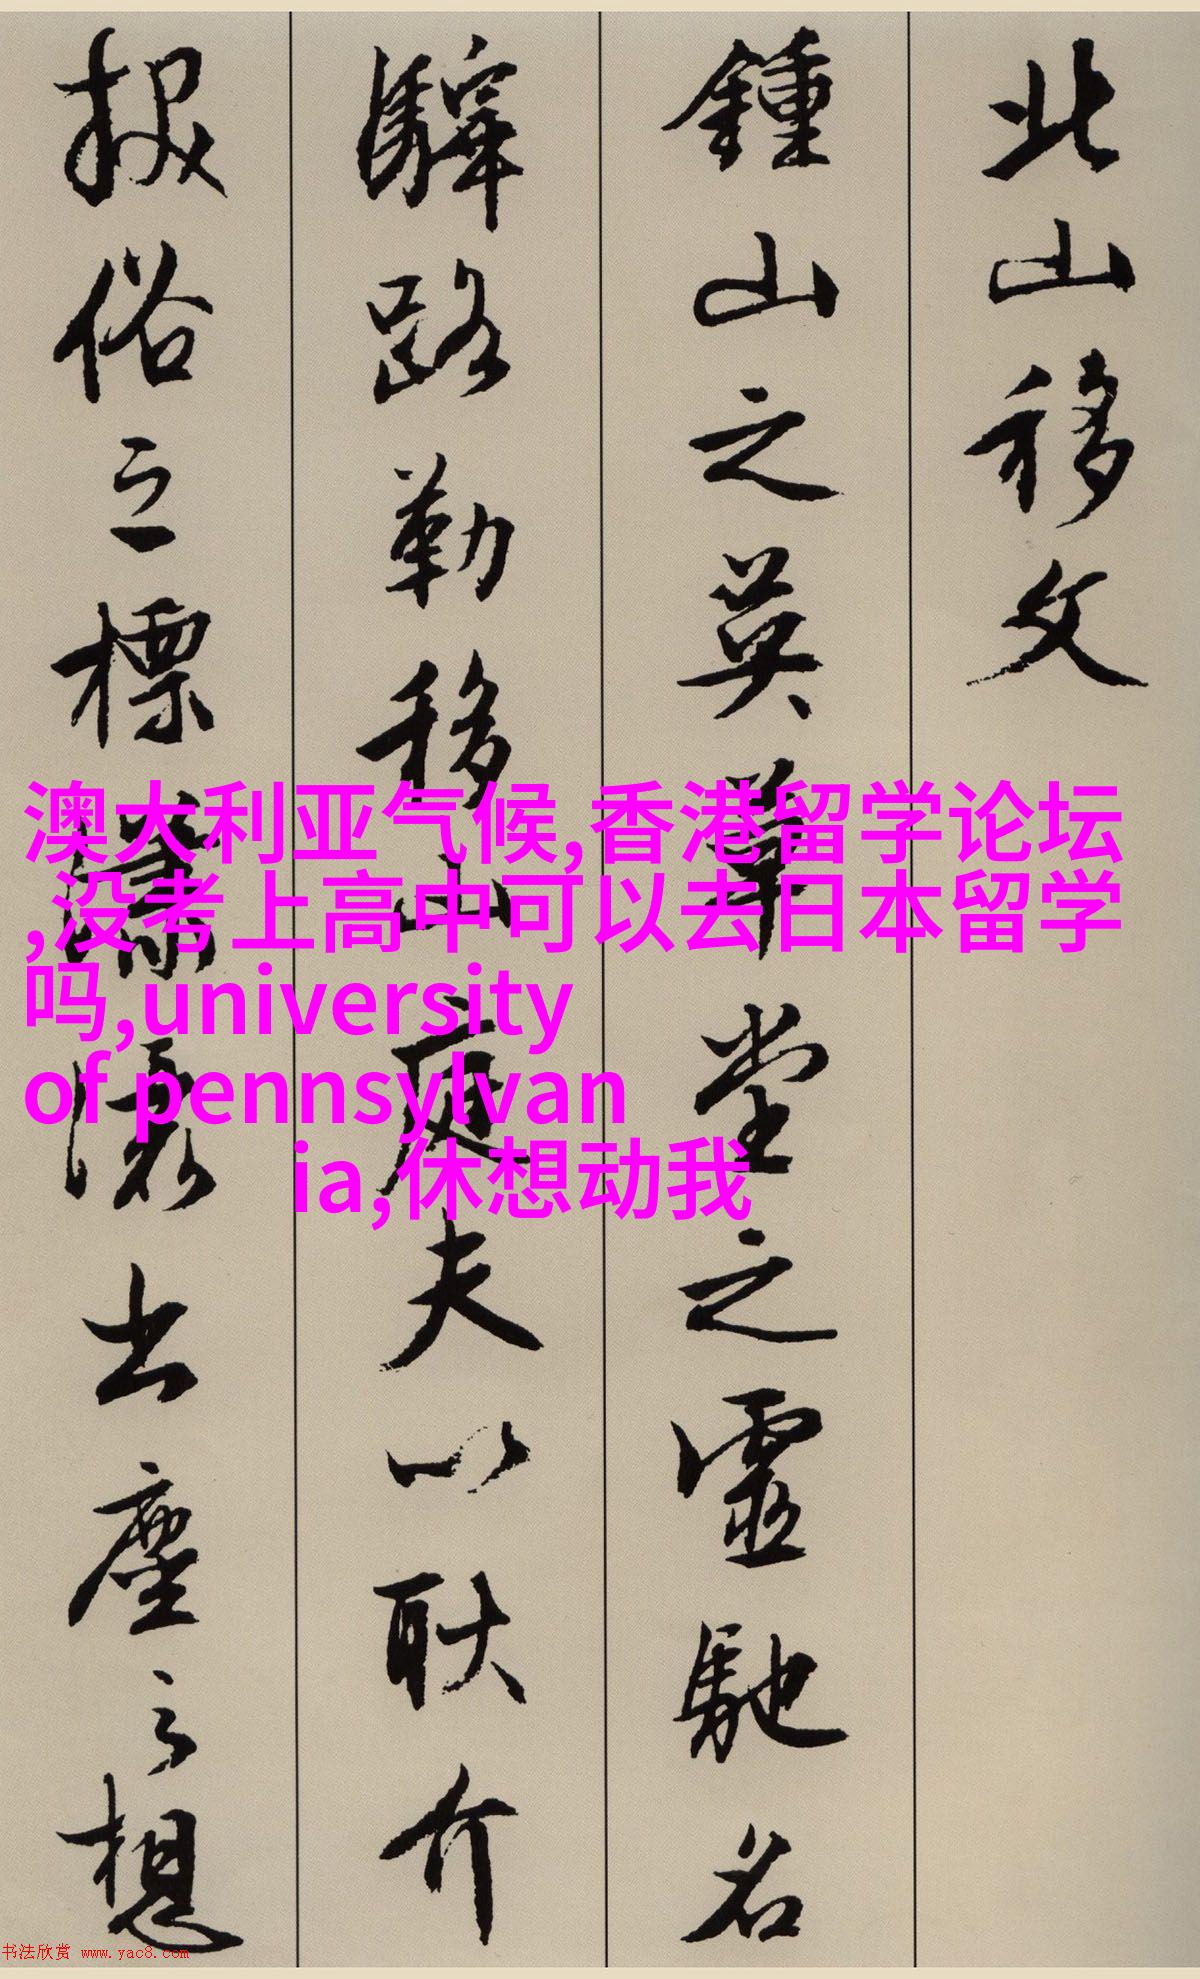 北山移文
鍾山之英華堂之靈馳名
驛路勒移山庭夫以耿介
拔俗之標瀟灑出塵之想
澳大利亚气候,香港留学论坛
,没考上高中可以去日本留学
吗,university
of pennsylvan
ia,休想动我
书法欣赏 www.yac8.com